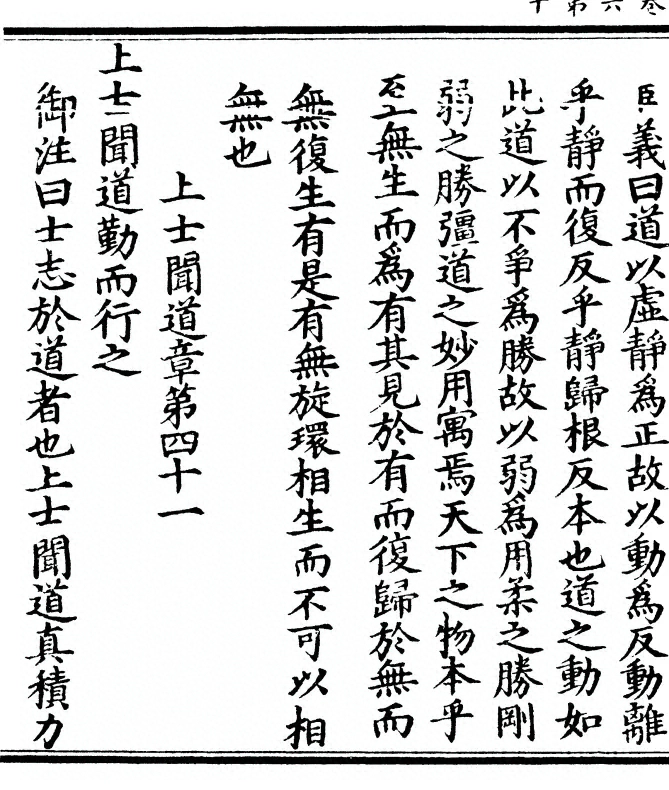 臣義曰道以虛靜爲正故以動爲反動離
乎靜而復反乎靜歸根反本也道之動如
此道以不爭爲勝故以弱爲用柔之勝剛
弱之勝彊道之妙用寓焉天下之物本乎
至無生而爲有其見於有而復歸於無而
無復生有是有無旋環相生而不可以相
無也
上士聞道章第四十一
上士聞道勤而行之
御注曰士志於道者也上士聞道真積力